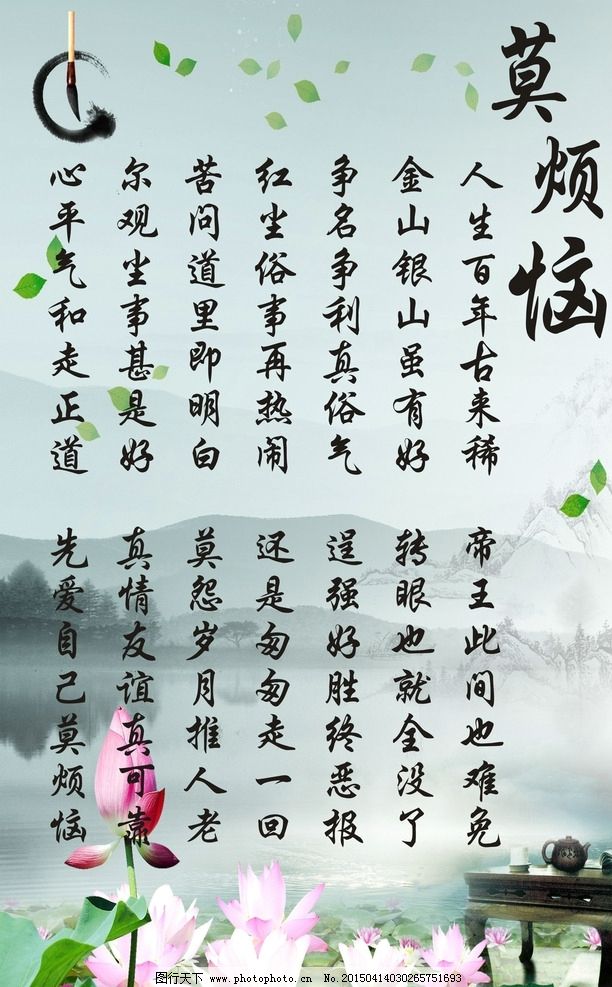 莫烦恼
人生百年古来稀
帝王此间也难免
金山银山虽有好
转眼也就全没了
争名争利真俗气
逞强好胜终恶报
红尘俗事再热闹
还是匆匆走一回
苦问道里即明白
莫怨岁月推人老
尔观尘事甚是好
真情友谊真可靠
心平气和走正道
先爱自己莫烦恼
图行天下 www.photophoto.cn No.20150414030265751693